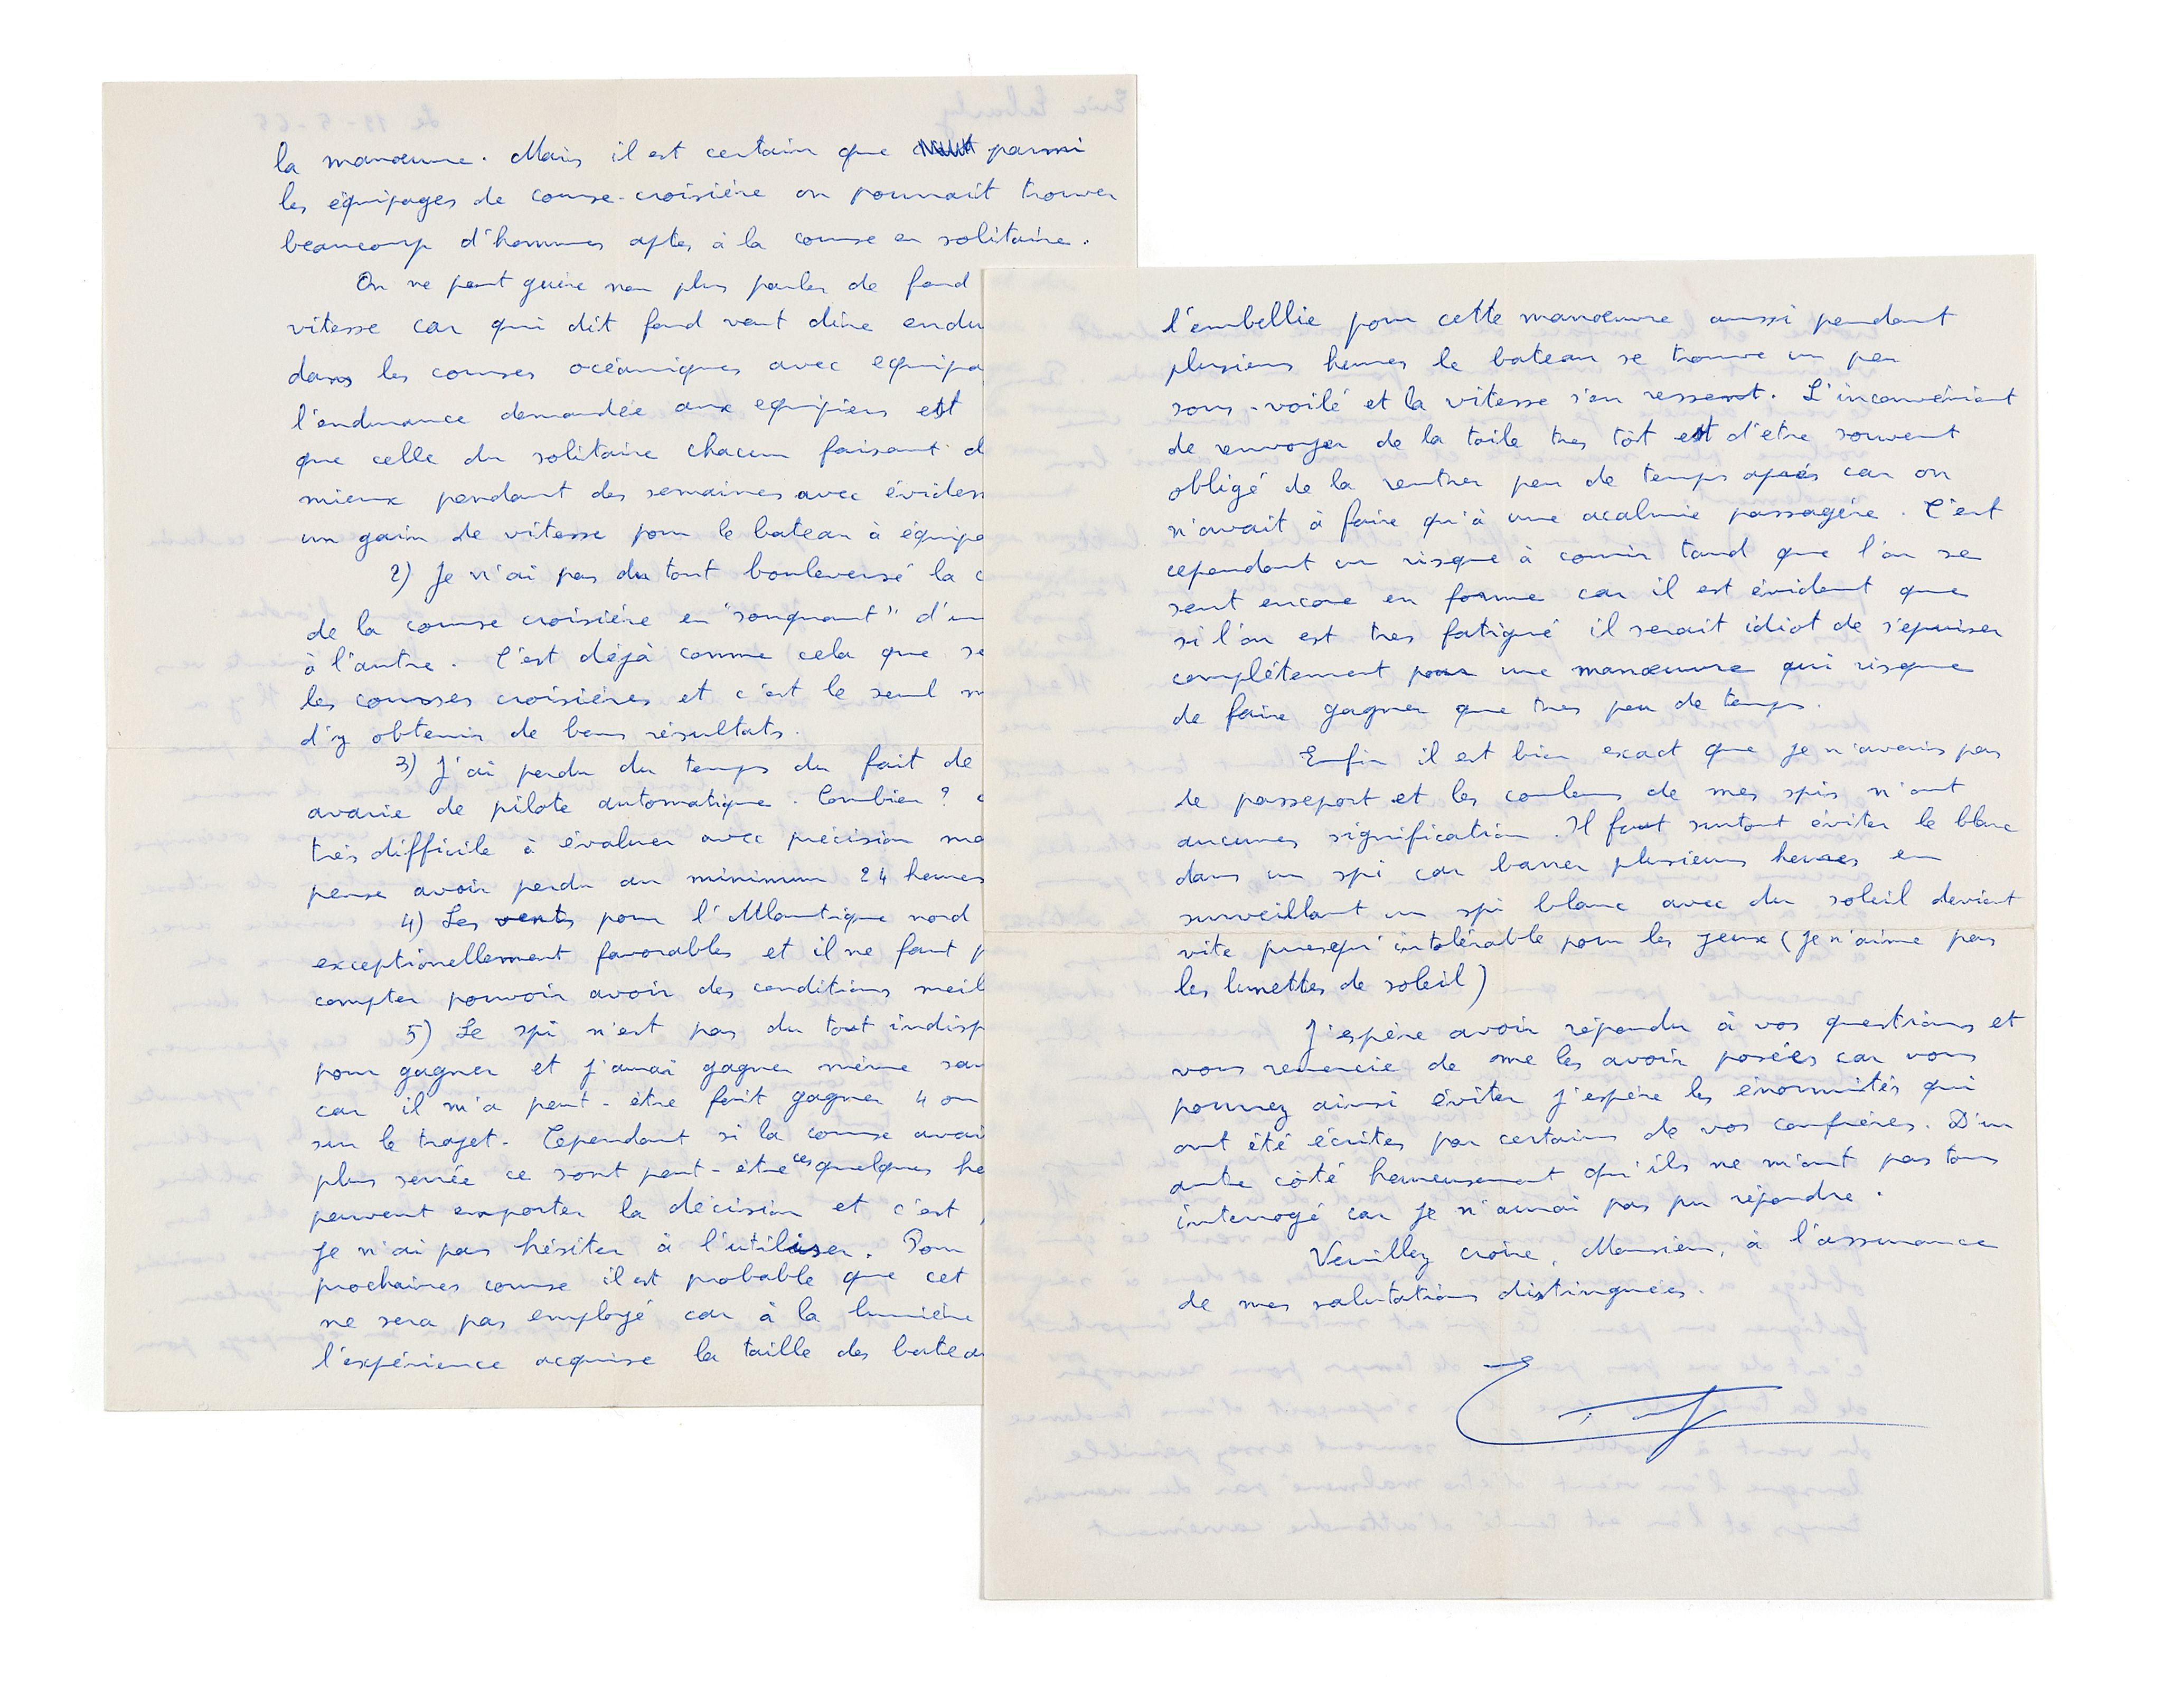 la manœuvre. Mais il est certain que parmi
les équipages de course-croisière on pourrait trouver
beaucoup d'hommes aptes à la course en solitaire.
On ne peut guère non plus parler de fond
vitesse car qui dit fond veut dire endu
dans les courses océaniques avec equipa
l'endurance demandée aux equipiers est
que celle du solitaire chacun faisant d
mieux pendant des semaines avec éviden
un gain de vitesse pour le bateau à équipa
2) Je n'ai pas du tout bouleversé la c
de la course croisière en "souquant" d'un
à l'autre. C'est déjà comme cela que se
les courses croisières et c'est le seul m
d'y obtenir de bons résultats.
3) J'ai perdu du temps du fait de
avarie de pilote automatique. Combien ? c
très difficile à évaluer avec précision ma
pense avoir perdu au minimum 24 heures
4) Les vents pour l'Atlantique nord
exceptionellement favorables et il ne faut p
compter pouvoir avoir des conditions meil
5) Le spi n'est pas du tout indisp
pour gagner et j'aurai gagner même san
car il m'a peut-être fait gagner 4 ou
sur le trajet. Cependant si la course avai
plus serrée ce sont peut-être ces quelques he
peuvent emporter la décision et c'est
je n'ai pas hésiter à l'utiliser. Pour
prochaines course il est probable que cet
ne sera pas employé car à la lumière
l'expérience acquise la taille des bateau
l'embellie pour cette manœuvre aussi pendant
plusieurs heures le bateau se trouve un peu
sous-voilé et la vitesse s'en ressent. L'inconvénient
de renvoyer de la toile tres tôt est d'etre souvent
obligé de la rentrer peu de temps après car on
n'avait à faire qu'à une acalmie passagère. C'est
cependant un risque à courir tand que l'on se
sent encore en forme car il est évident que
si l'on est tres fatigué il serait idiot de s'épuiser
complétement pour une manœuvre qui risque
de faire gagner que tres peu de temps.
Enfin il est bien exact que je n'avais pas
de passeport et les couleurs de mes spis n'ont
aucunes signification. Il faut surtout éviter le blanc
dans un spi car barrer plusieurs heures en
surveillant un spi blanc avec du soleil devient
vite presqu'intolérable pour les yeux (je n'aime pas
les lunettes de soleil)
J'espère avoir répondu à vos questions et
vous remercie de me les avoir posées car vous
pourrez ainsi éviter j'espère les énormités qui
ont été écrites par certains de vos confrères. D'un
autre côté heureusement qu'ils ne m'ont pas tous
interrogé car je n'aurai pas pu répondre.
Veuillez croire, Monsieur, à l'assurance
de mes salutations distinguées.